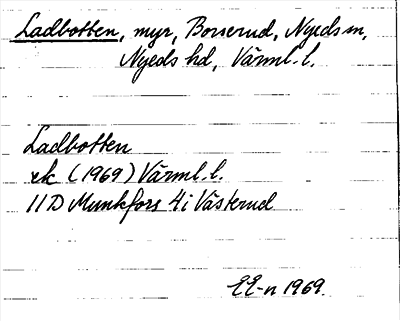 Ladbotten, myr, Borserud, Nyeds sn,
Nyeds hd, Värml. l.
Ladbotten
ek (1969) Värml. l.
11D Munkfors 4i Västerud
EE-n 1969.